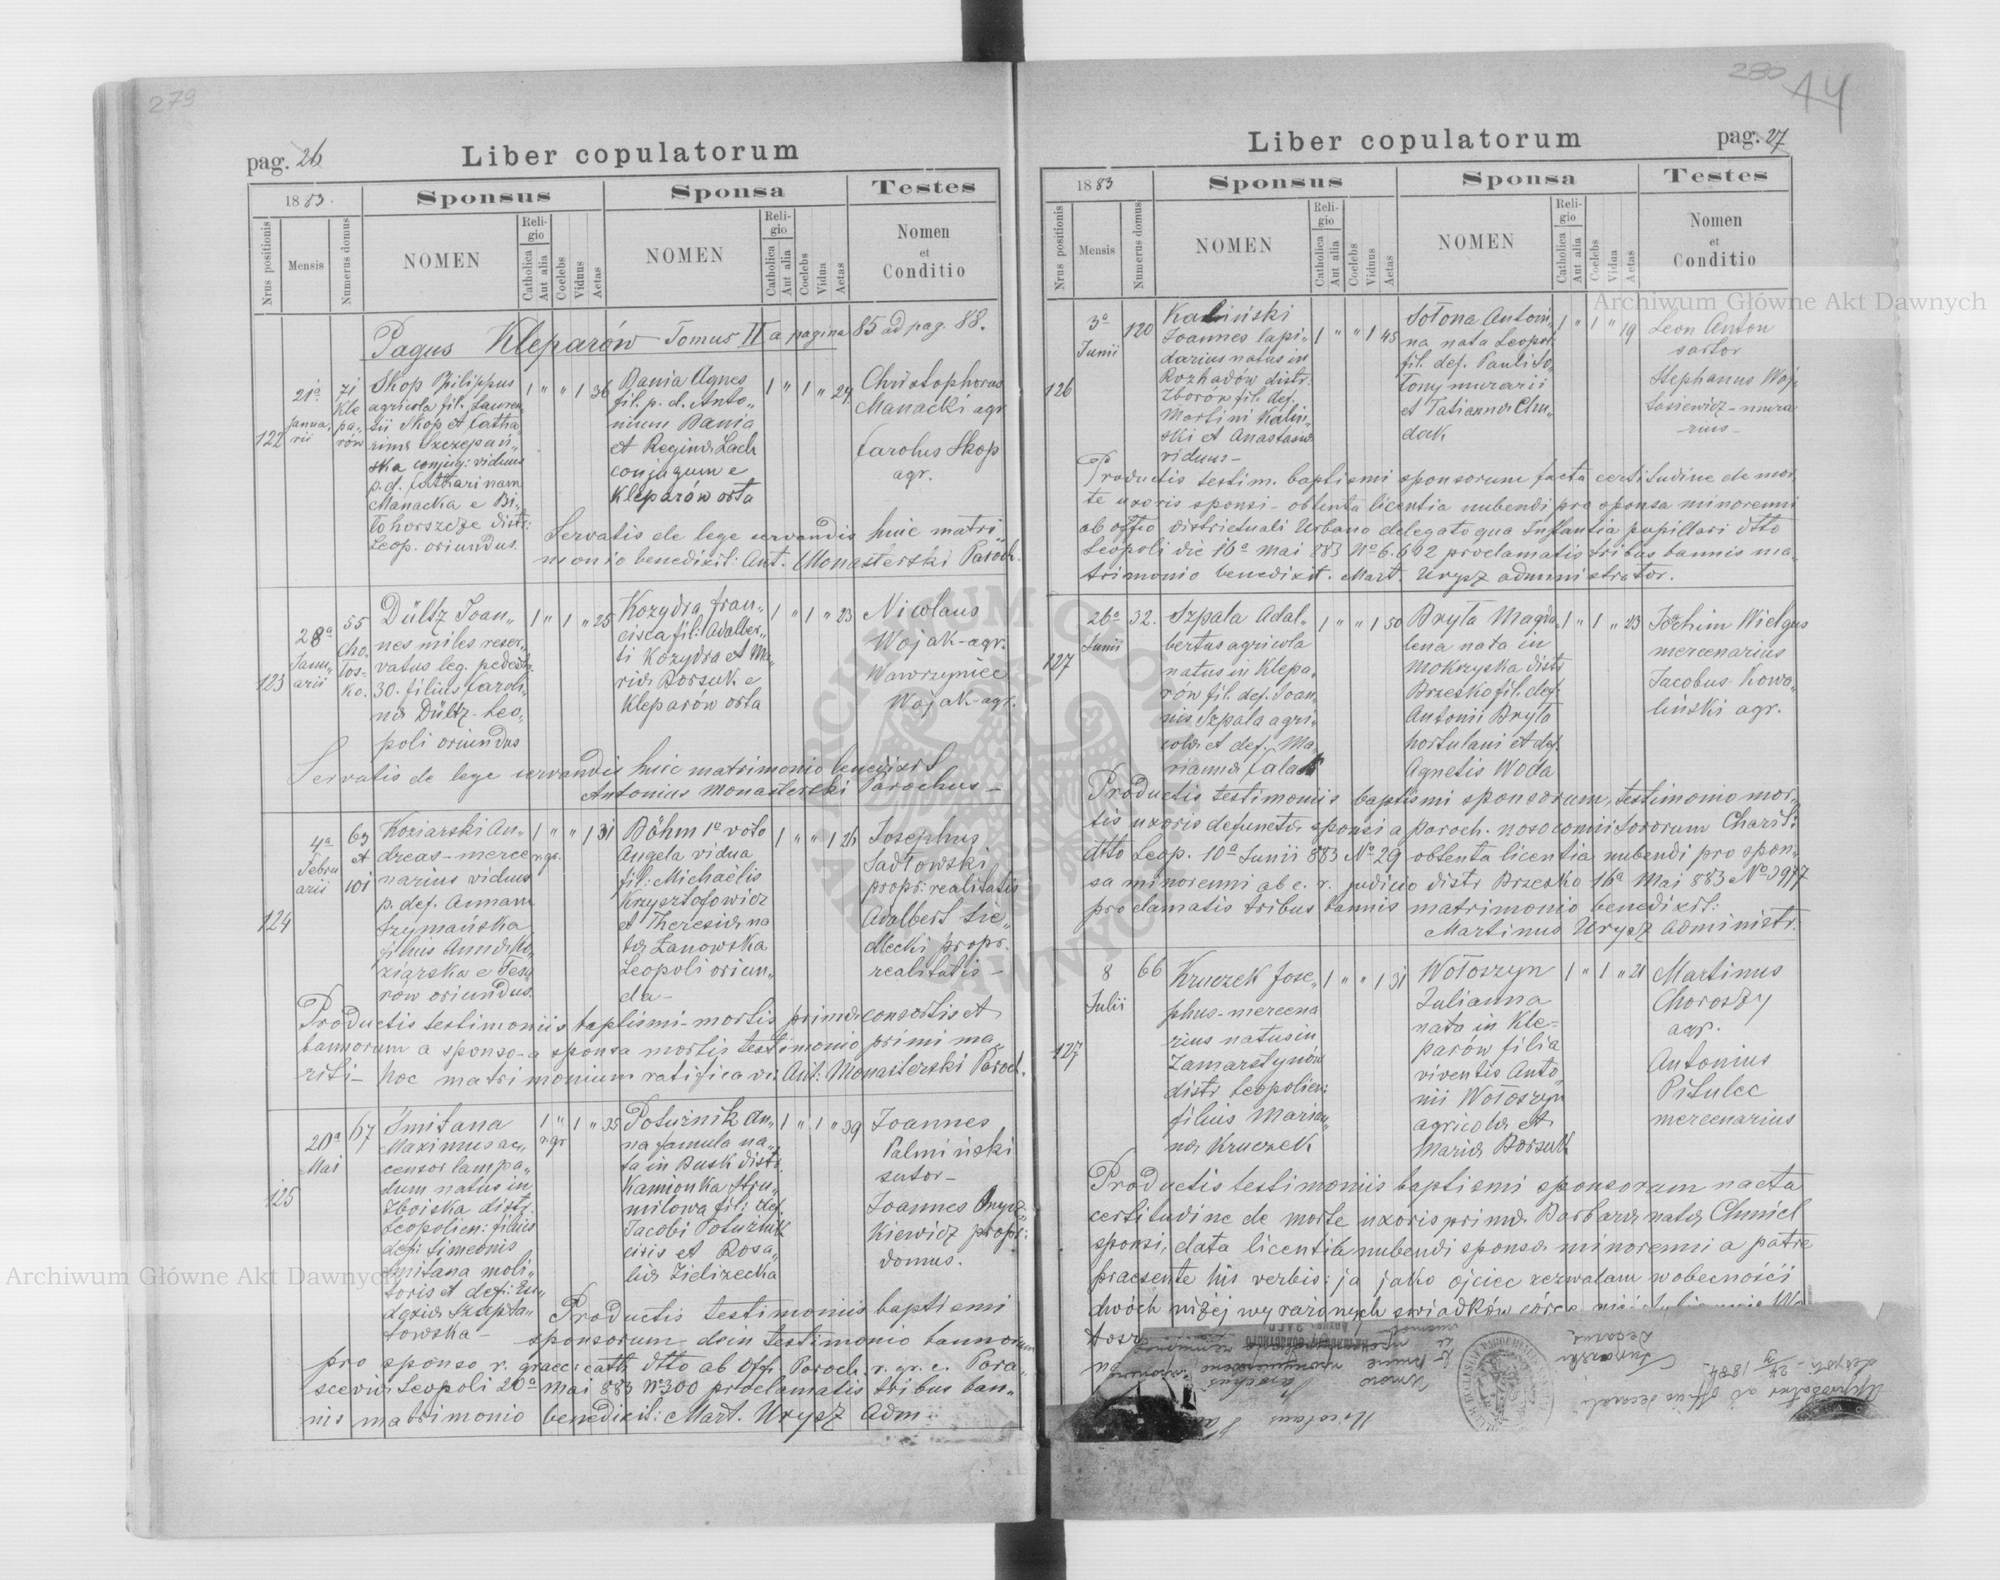 279
pag. 26
Liber copulatorum
1883.
Sponsus
Sponsa
Testes
Nrus positionis
Mensis
Numerus domus
NOMEN
Religio
Catholica
Aut alia
Coelebs
Viduus
Aetas
NOMEN
Religio
Catholica
Aut alia
Coelebs
Vidua
Aetas
Nomen
et
Conditio
Pagus Kleparów Tomus II a pagina 85 ad pag. 88.
122
21a
Janua„
rii
71
Kle
pa„
rów
Skop Philippus
agricola fil. Lauren
tii Skop et Catha
rina Szczepań„
ska conjug: viduus
p. d. Catharinam
Manacka e Bi„
łohorszcze distr:
Leop. oriundus.
1 „ „ 1 36
Bania Agnes
fil. p. d. Anto„
nium Bania
et Regina Lach
conjugum e
Kleparów orta
1 „ 1 „ 24
Christophorus
Manacki agr.
Carolus Skop
agr.
Servatis de lege servandis huic matri„
monio benedixit: Ant. Monasterski Paroch.
123
28a
Janu„
arii
55
Cho„
łos„
ko.
Dültz Joan„
nes miles reser„
vatus leg. pedestr.
30. filius Caroli„
na Dültz. Leo„
poli oriundus
1 „ 1 „ 25
Kozydra fran„
cisca fil: Adalber„
ti Kozydra et Ma„
ria Borsuk e
Kleparów orta
1 „ 1 „ 23
Nicolaus
Wojak-agr.
Wawrzyniec
Wojak-agr.
Servatis de lege servandis huic matrimonio benedixit
Antonius Monasterski Parochus –
124
4a
Febru
arii
63
et
101
Koziarski An„
dreas - merce
narius viduus
p. def. Annam
Szymańska
filius Anna Ko„
ziarska e Tesz
rów oriundus.
1 „ „ 1 31
r. gr.
Böhm 1o voto
Angela vidua
fil: Michaelis
Krzysztofowicz
et Theresia na
ta Zanowska
Leopoli oriun„
da –
1 „ „ 1 26
Josephus
Sadłowski
propr: realitatis
Adalbert Sie„
dlecki propr.
realitatis –
Productis testimoniis baptismi - mortis prima consortis et
bannorum a sponso - a sponsa mortis testimonio primi ma„
riti - hoc matrimonium ratificavi: Ant: Monasterski Paroch.
125
20a
Mai
67
Smitana
Maximus ac„
censor lampa„
dum natus in
Zboiska distr.
Leopolien: filius
def: Simeonis
Smitana moli„
toris et def: Eu„
doxia Szepta„
łowska –
1 „ 1 „ 35
r. gr
Potuznik An„
na famula na„
ta in Busk distr.
Kamionka Stru„
milowa fil: def.
Jacobi Potuznik
civis et Rosa„
lia Zielizecka
1 „ 1 „ 39
Joannes
Palmiński
sutor –
Joannes
kiewicz propr:
domus.
Productis testimoniis baptismi
sponsorum dein testimonio bannorum
pro sponso r. graeci cath. dtto ab Off. Paroch. r. gr. c. Para„
scevia Leopoli 20a Mai 883 No 300 proclamatis tribus ban„
nis matrimonio benedixit: Mart. Urysz Adm.
280
14
Liber copulatorum
pag. 27
1883
Sponsus
Sponsa
Testes
Nrus positionis
Mensis
Numerus domus
NOMEN
Religio
Catholica
Aut alia
Coelebs
Viduus
Aetas
NOMEN
Religio
Catholica
Aut alia
Coelebs
Vidua
Aetas
Nomen
et
Conditio
Archiwum Główne Akt Dawnych
126
3a
Junii
120
Kaliński
Joannes lapi„
darius natus in
Rozhadów distr.
Zborów fil. def.
Martini Kaliń„
ski et Anastasia
viduus –
1 „ „ 1 45
Sołona Anton„
na nata Leopol.
fil. def. Pauli So„
łony murarii
et Tatianna Chu„
dak
1 „ 1 „ 19
Leon Anton
sartor
Stephanus Woj„
tasiewicz - mura
rius –
Productis testim. baptismi sponsorum facta certitudine de mor„
te uxoris sponsi - obtenta licentia nubendi pro sponsa minorenni
ab offio districtuali Urbano delegato qua Instantia pupillari dtto
Leopoli die 16a Mai 883 No 6.692 proclamatis tribus bannis ma„
trimonio benedixit. Mart. Urysz administrator.
127
26a
Junii
32.
Szpala Adal„
bertus agricola
natus in Klepa„
rów fil. def. Joan„
nis Szpala agri„
cola et def. Ma„
rianna
1 „ „ 1 50
Bryła Magda„
lena nata in
Mokrzyska distr
Brzesko fil. def.
Antonii Bryła
hortulani et def.
Agnetis Woda
1 „ 1 „ 23
Jochim Wielgus
mercenarius
Jacobus Kowa„
liński agr.
Productis testimoniis baptismi sponsorum, testimonio mor„
tis uxoris defuncta sponsi a paroch. nosocomii Sororum Charit:
dtto Leop. 10a Junii 883 No 29 obtenta licentia nubendi pro spon„
sa minorenni ab c. r. judicio distr Brzesko 16a Mai 883 No 3977
proclamatis tribus bannis matrimonio benedixit:
Martinus Urysz Administr.
127
8
Julii
66
Kruczek Jose„
phus - mercena
rius natus in
Zamarstynów
distr Leopolien:
filius Marian„
na Kruczek
1 „ „ 1 31
Wołoszyn
Julianna
nata in Kle=
parów filia
viventis Anto„
nii Wołoszyn
agricola et
Maria Borsuk
1 „ 1 „ 21
Martinus
Choroszy
agr.
Antonius
Pitulec
mercenarius
Productis testimoniis baptismi sponsorum nacta
certitudine de morte uxoris prima Barbara nata Chmiel
sponsi, data licentia nubendi sponsa minorenni a patre
praesente his verbis: ja jako ojciec zezwalam w obecności
dwóch niżej wyrażonych świadków córce
Archiwum Główne Akt Dawnych
Nicolaus
Parochus
Decanus
Leopoli - 24/3 1884.